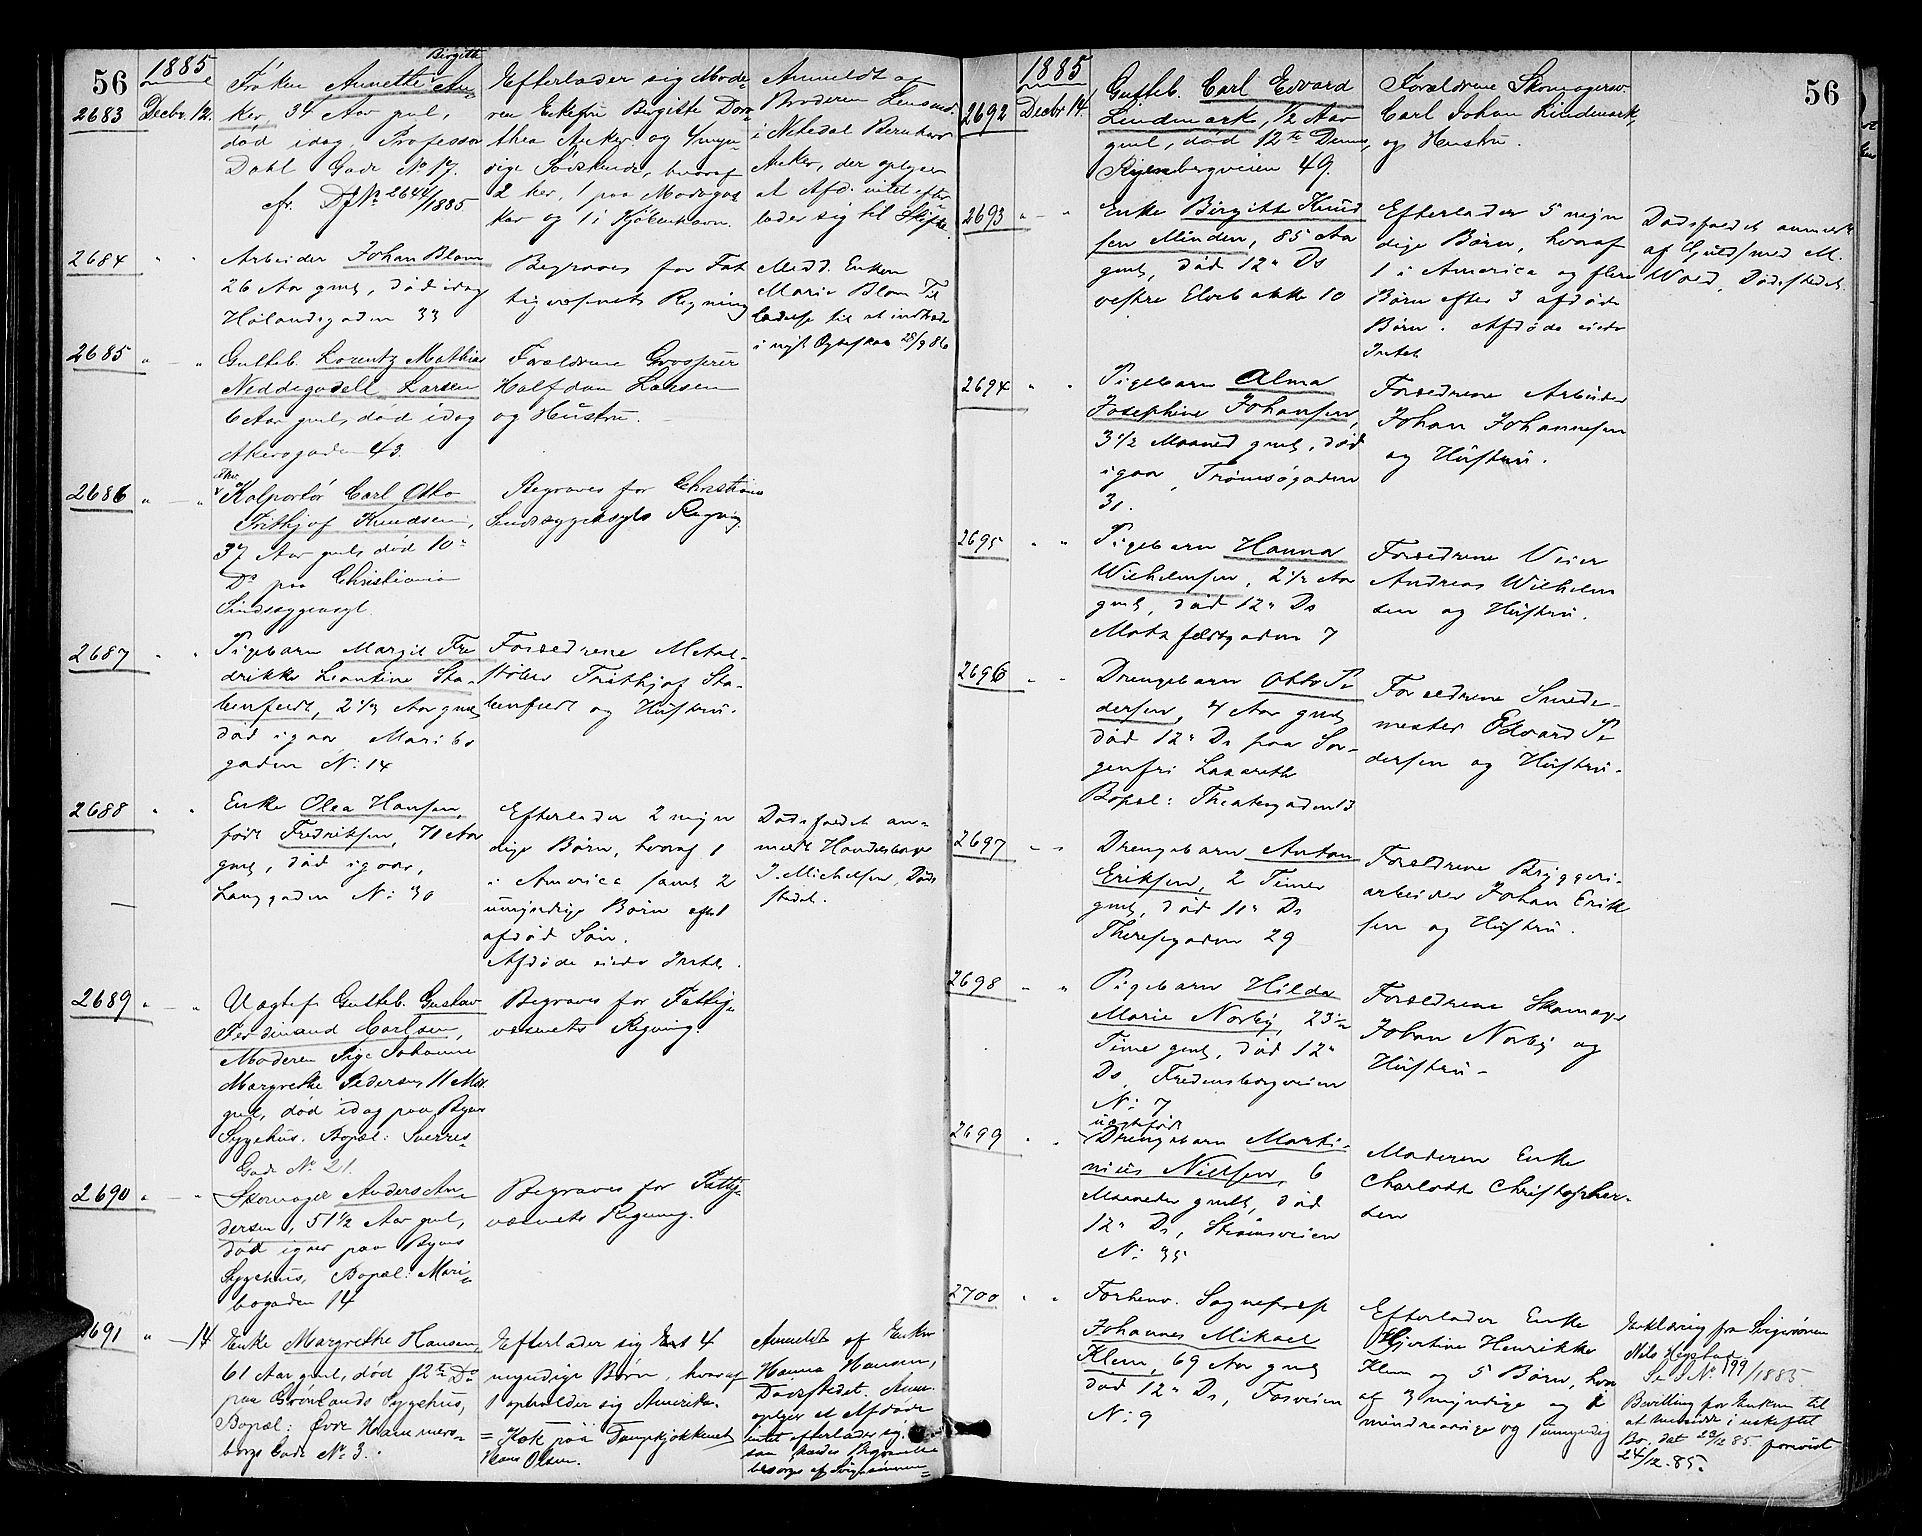 56
1885
2683 Decbr. 12.
Frøken Annette Birgitte An-
ker, 34 Aar gul,
død idag, Professor
Dahl Gade No 17.
cfr. DfNo 2644/1885
Efterlader sig Mode-
ren Enkefru Birgitte Doro-
thea Anker og 4 myn-
dige Sødskende, hvoraf
2 her, 1 paa Madagas-
kar og 1 i Kjøbenhavn.
Anmeldt af
Broderen
i Bernhard
Anker, der oplyser
at Afd. intet efter-
lader sig til Skifte.
2684 " "
Arbeider Johan Blom
26 Aar gml, død idag
Hølandsgaden 33
Begraves for Fat-
tigvæsenets Regning
Medd. Enken
Marie Blom Til-
ladelse til at indtræde
i nyt Ægteskab 28/9 86
2685 " "
Gutteb. Lorentz Mathias
Neddegodell Larsen
6 Aar gul, død idag
Akersgaden 43.
Forældrene Grosserer
Halfdan Larsen
og Hustru.
2686 " "
Kolportør Carl Otto
Frithjof Knudsen,
37 Aar gul, død 10"
Ds paa Christiania
Sindssygeasyl.
Begraves for Christiania
Sindssygeasyls Regning
2687 " "
Pigebarn Margit Fre-
drikke Leontine Sta-
benfeldt, 2 1/2 Aar gml
død igaar, Maribo-
gaden No: 14
Forældrene Metal-
støber Frithjof Sta-
benfeldt og Hüstrü.
2688 " "
Enke Olea Hansen,
født Fredriksen, 71 Aar
gml, død igaar,
Langgaden No: 30
Efterlader 2 myn-
dige Børn, hvoraf 1
i America samt 2
umyndige Børn efter
afdød Søn.
Afdøde eiede Intet.
Dødsfaldet an-
meldt
J. Michelsen, Døds-
stedet.
2689 " "
Uægtef. Gutteb. Gustav
Ferdinand Carlsen,
Moderen Pige Johanne
Margrethe Pedersen 11 Md.
gul, død idag paa Byens
Sygehus. Bopæl: Sverres-
Gade No 21.
Begraves for Fattig-
væsenets Regning.
2690 " "
Skomager Anders An-
dersen, 51 1/2 Aar gul,
død igaar paa Byens
Sygehus, Bopæl: Mari-
bogaden 14
Begraves for Fattig-
væsenets Regning.
2691 " 14
Enke Margrethe Hansen,
61 Aar gul, død 12te Ds
paa Grønlands Sygehus,
Bopæl: Øvre Hammers-
borgs Gade No 3.
Efterlader sig 4
myndige Børn, hvoraf
1 opholder sig Amerika.
= Kok paa Dampkjøkkenet
Hans Olsen.
Anmeldt af Enken
Hanna Hansen,
Dødsstedet. Anm.
oplyser at Afdøde
intet efterlader sig,
Begravelse
besørges af Svigersønnen =
56
1885
2692 Decbr 14.
Gutteb. Carl Edvard
Lindemark, 1/2 Aar
gul, død 12te Dennes,
49.
Forældrene Skomagersv.
Carl Johan Lindemark,
og Hustru.
2693 " "
Enke Birgitte Knud-
sen Minden, 85 Aar
gml, død 12" Ds
vestre Elvebakke 10
Efterlader 5 myn-
dige Børn, hvoraf
1 i America og flere
Børn efter 3 afdøde
Børn. Afdøde eiede
Intet
Dødsfaldet anmeldt
af Guldsmed M.
Wold, Dødsstedet.
2694 " "
Pigebarn Alma
Josephine Johansen,
3 1/2 Maaned gml, død
igaar, Tromsøgaden
31.
Forældrene Arbeider
Johan Johannesen
og Hüstrü.
2695 " "
Pigebarn Hanna
Wilhelmsen, 2 1/2 Aar
gml, død 12" Ds
Motzfeldtsgaden 7
Forældrene Veier
Andreas Wilhelm-
sen og Hüstrü.
2696 " "
Drengebarn Otto Pe-
dersen, 7 Aar gml
død 12" Ds paa Sor-
genfri Lazareth
Bopæl: Theatergaden 13
Forældrene Smede-
mester Edvard Pe-
dersen og Hüstrü.
2697 " "
Drengebarn Anton
Eriksen, 2 Timer
gml, død 11" Ds
Theresegaden 29
Forældrene Bryggeri-
arbeider Johan Erik-
sen og Hüstrü.
2698 " "
Pigebarn Hilda
Marie Norby, 23 1/2
Time gml, død 12"
Ds, Fredensborgveien
No: 7
Forældrene Skomager
Johan Norby og
Hüstrü.
2699 " "
uægtefødt
Drengebarn Marti-
niüs Nielsen, 6
Maaneder gml, død
12" Ds, Strømsveien
No: 35
Moderen Enke
Charlotte Christopher-
sen
2700 " "
Forhenv. Sogneprest
Johannes Mikael
Klem, 69 Aar gml
død 12" Ds, Fosveien
No: 9
Efterlader Enke
Hjertine Henrikke
Klem og 5 Børn, hvor-
af 3 myndige og 1
mindreaarige og 1 umyndig
Erklæring fra Svigersønnen
Nils
Se No 199/1885.
Bevilling for Enken til
at hensidde i uskiftet
Bo, dat 23/12 85 forevist
24/12 85.